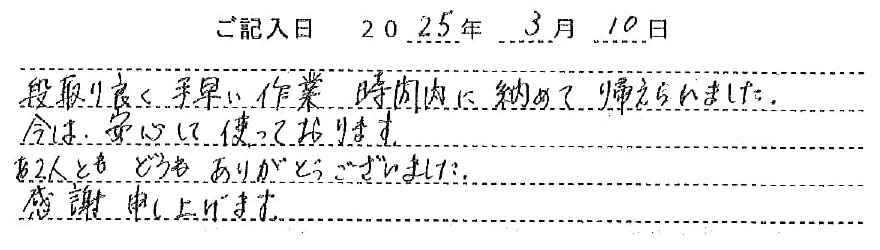 ご記入日 2025年 3月 10日
段取り良く 手早い 作業 時間内に 納めて 帰えられました。
今は、安心して 使っております。
お2人とも どうも ありがとうございました。
感謝 申し上げます。